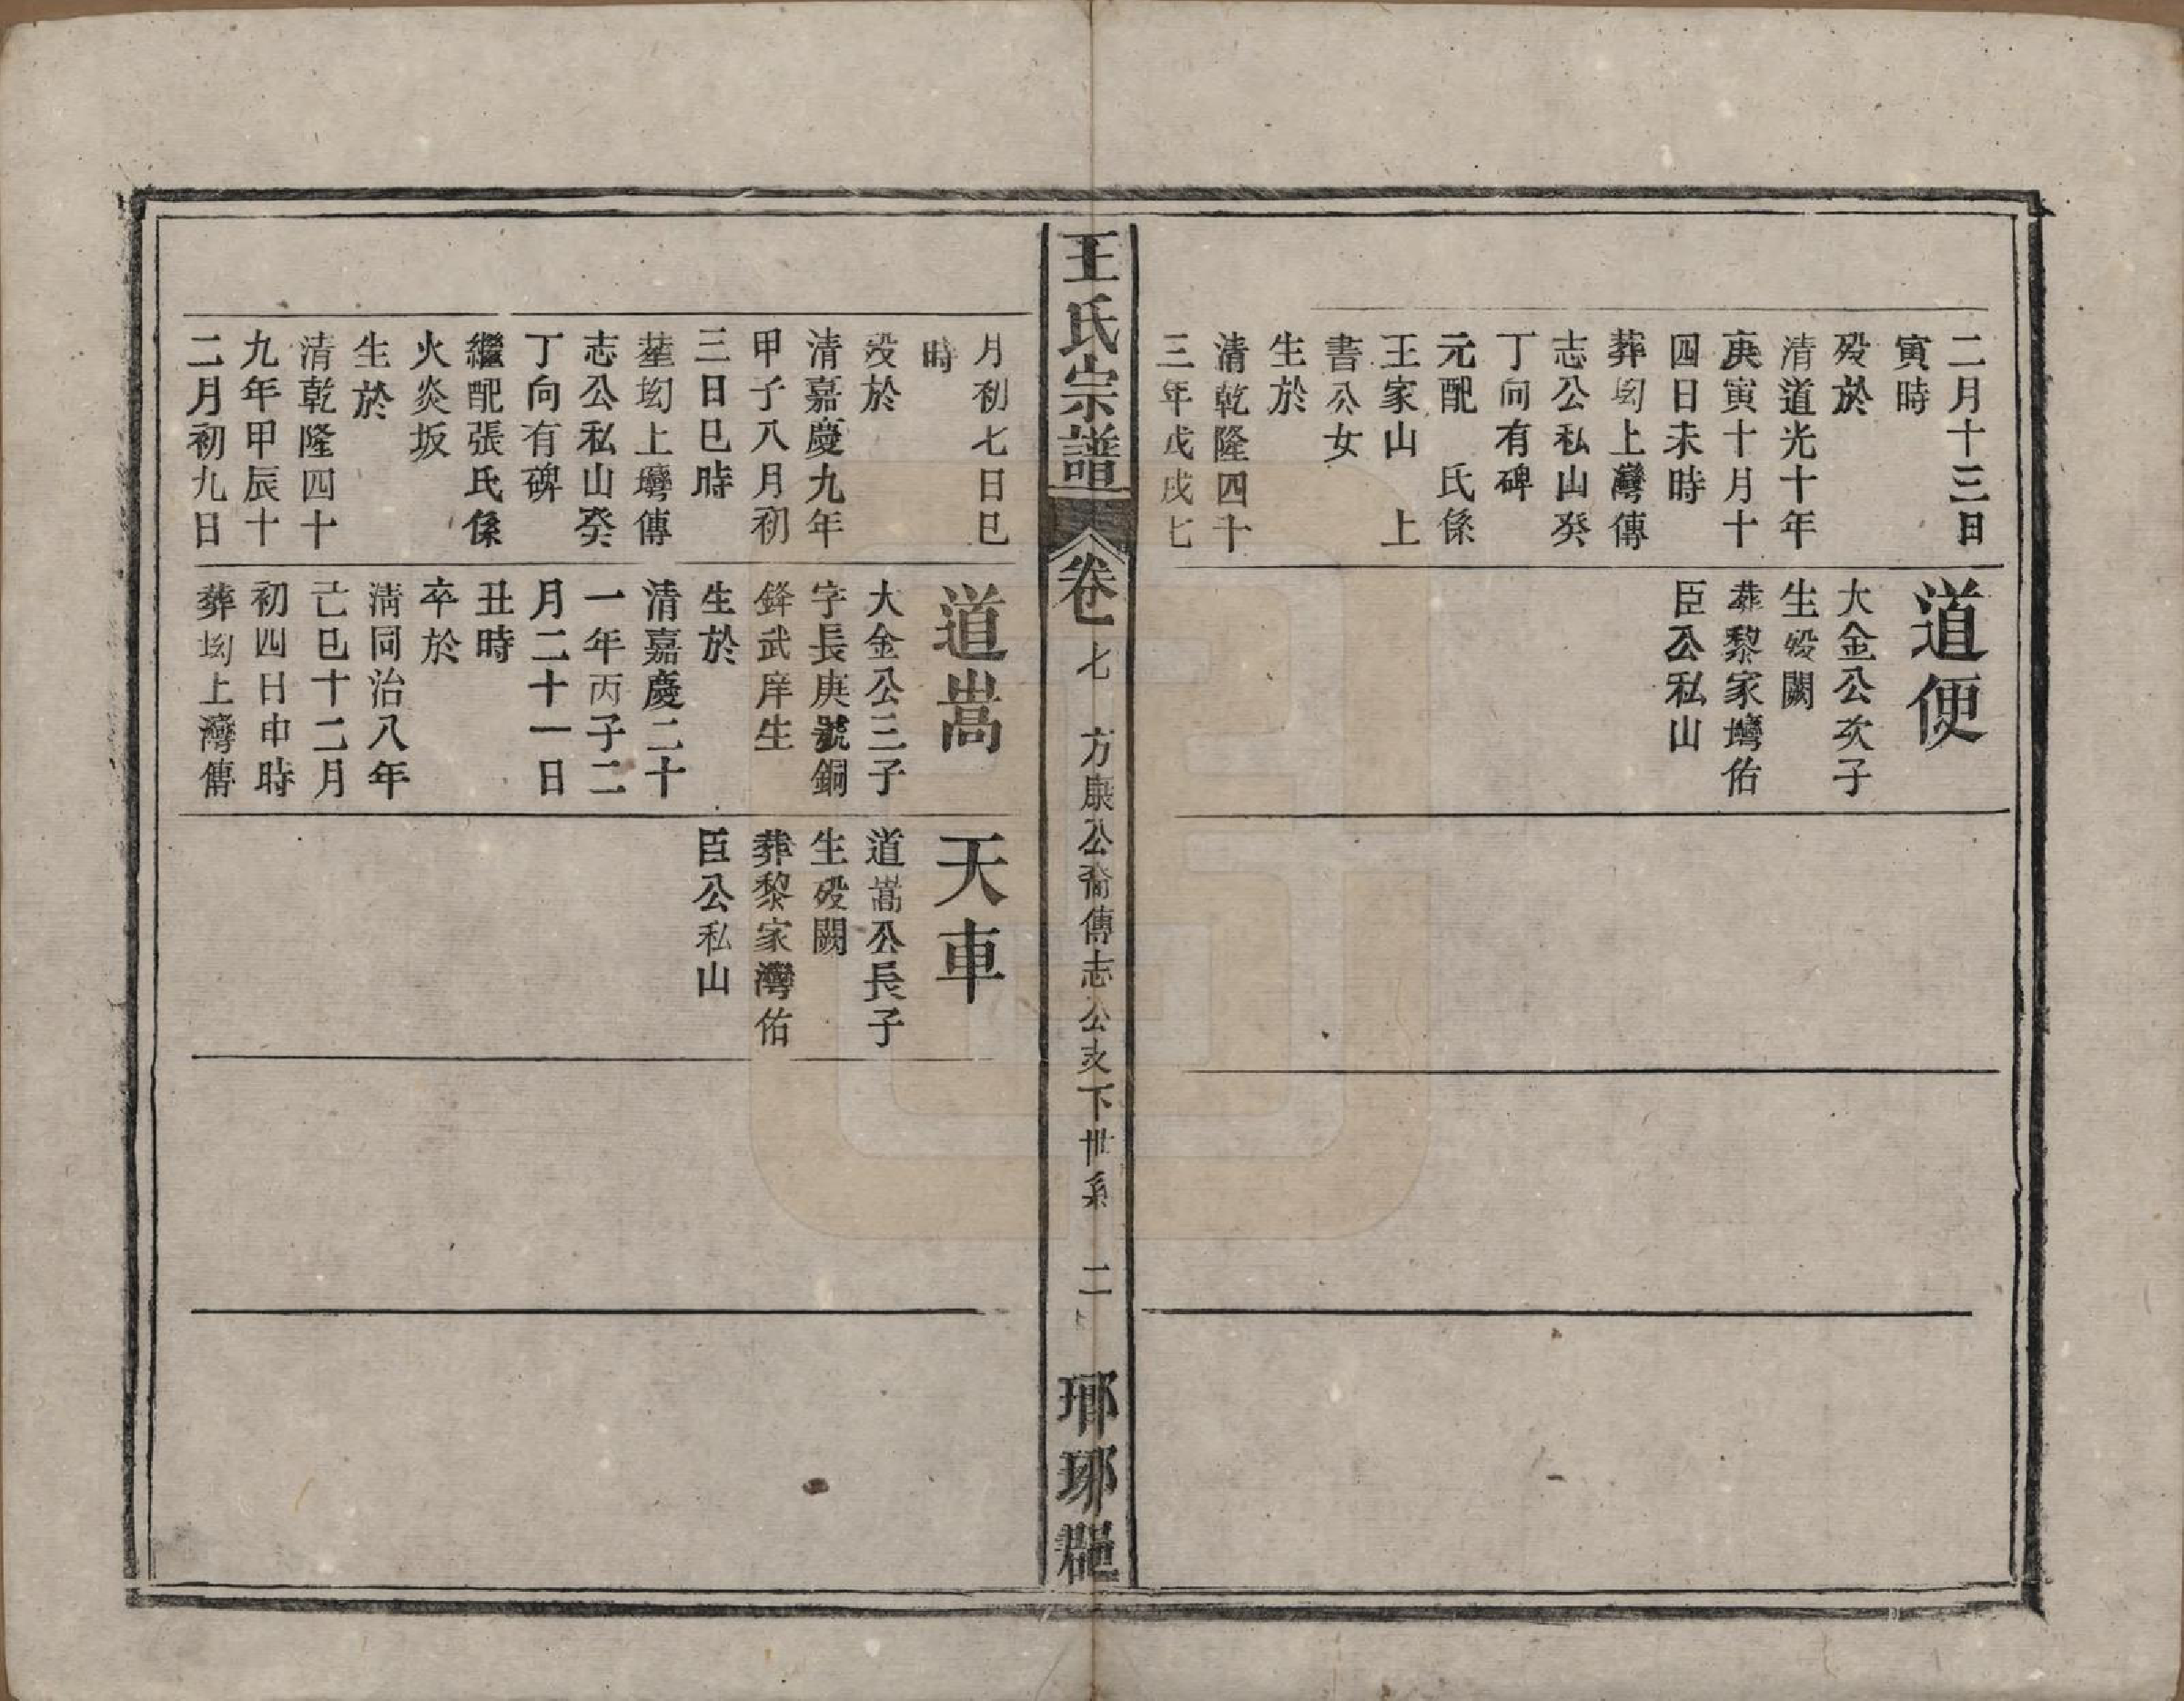 二月十三日
寅時
殁於
清道光十年
庚寅十月十
四日未時
葬坳上灣傳
志公私山癸
丁向有碑
元配　氏係
王家山　上
書公女
生於
清乾隆四十
三年戊戌七
道便
大金公次子
生殁闕
葬黎家灣佑
臣公私山
王氏宗譜
卷七
方康公裔傳志公支下世系
二
瑯琊郡
月初七日巳
時
殁於
清嘉慶九年
甲子八月初
三日巳時
葬坳上灣傳
志公私山癸
丁向有碑
繼配張氏係
火炎坂
生於
清乾隆四十
九年甲辰十
二月初九日
道嵩
大金公三子
字長庚號銅
鋒武庠生
生於
清嘉慶二十
一年丙子二
月二十一日
丑時
卒於
清同治八年
己巳十二月
初四日申時
葬坳上灣傳
天車
道嵩公長子
生殁闕
葬黎家灣佑
臣公私山